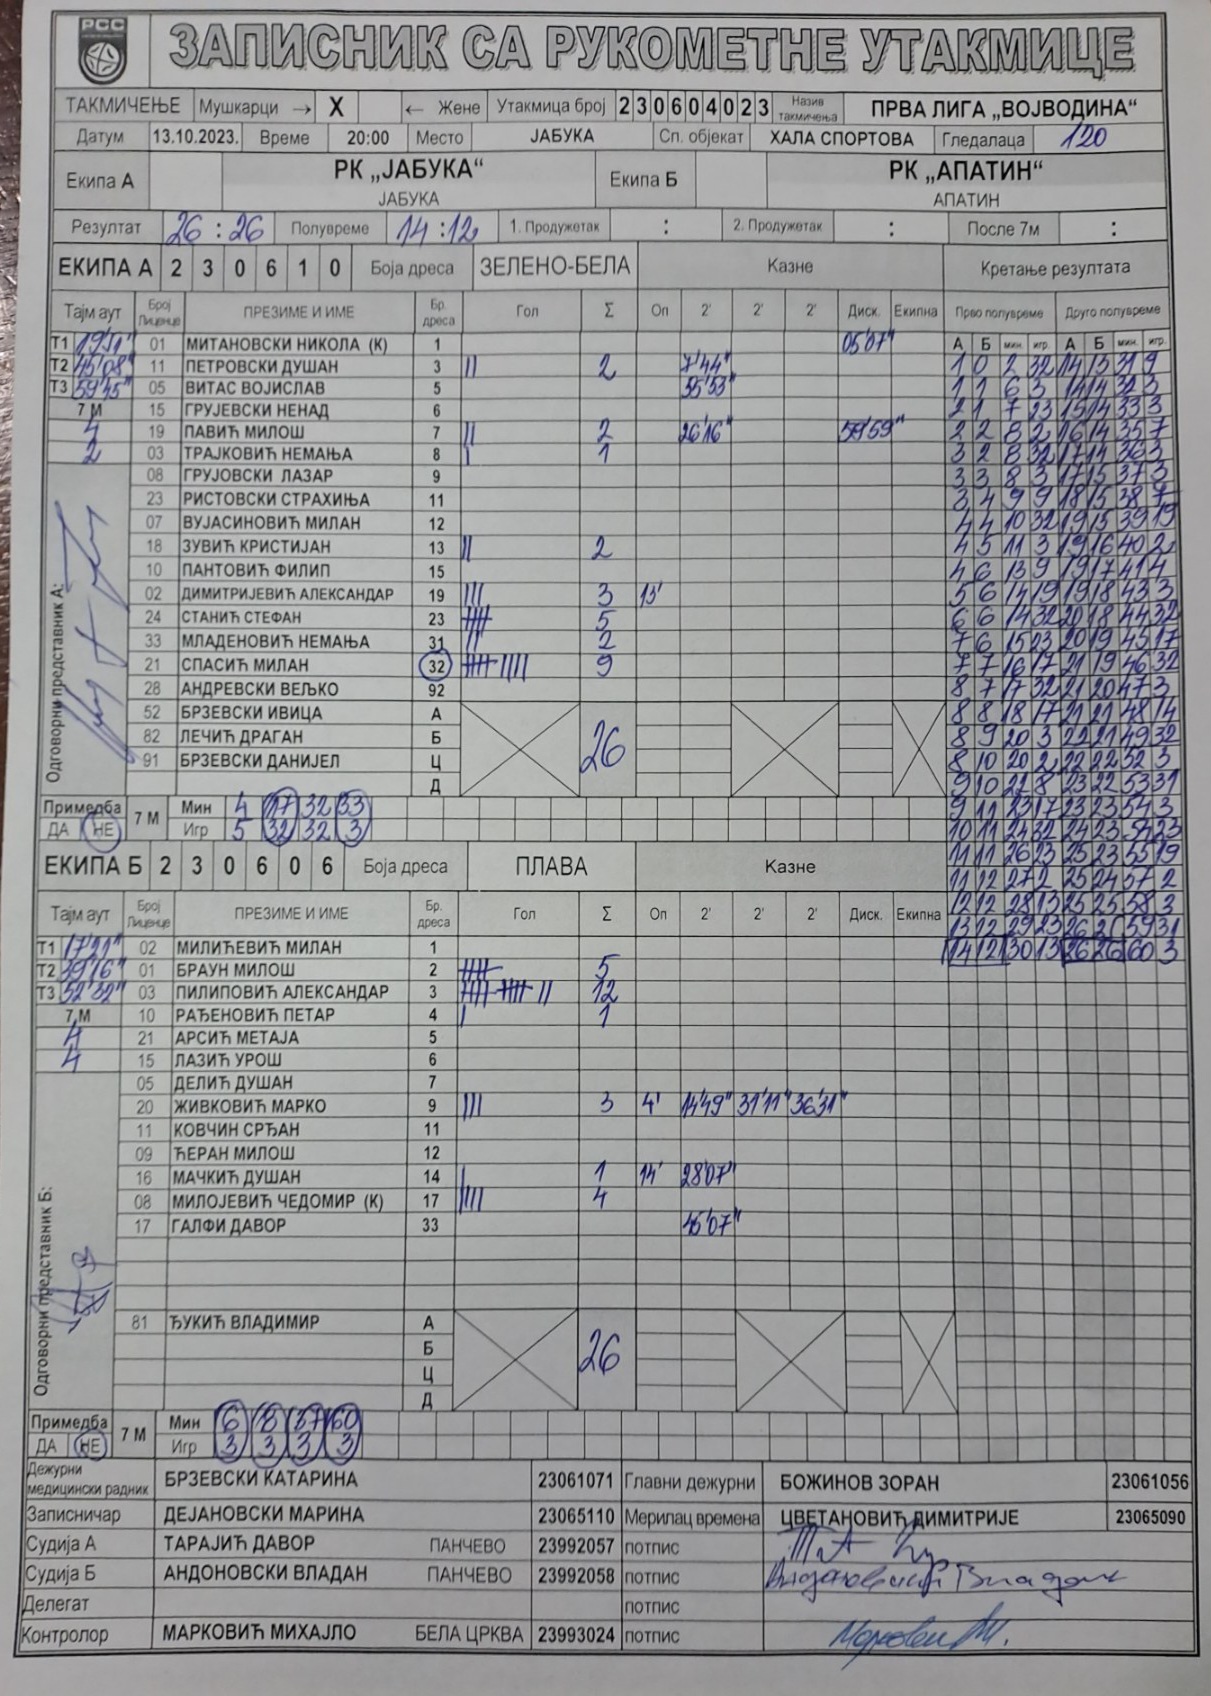 РСС
ЗАПИСНИК СА РУКОМЕТНЕ УТАКМИЦЕ
ТАКМИЧЕЊЕ Мушкарци → X ← Жене Утакмица број 230604023 Назив такмичења ПРВА ЛИГА „ВОЈВОДИНА“
Датум 13.10.2023. Време 20:00 Место ЈАБУКА Сп. објекат ХАЛА СПОРТОВА Гледалаца 120
Екипа А РК „ЈАБУКА“ Екипа Б РК „АПАТИН“
ЈАБУКА АПАТИН
Резултат 26 : 26 Полувреме 14 : 12 1. Продужетак : 2. Продужетак : После 7м :
ЕКИПА А 2 3 0 6 1 0 Боја дреса ЗЕЛЕНО-БЕЛА Казне Кретање резултата
Тајм аут Број Лиценце ПРЕЗИМЕ И ИМЕ Бр. дреса Гол Σ Оп 2' 2' 2' Диск. Екипна Прво полувреме Друго полувреме
А Б мин. игр. А Б мин. игр.
Т1 19'51" 01 МИТАНОВСКИ НИКОЛА (К) 1 05'07"
Т2 45'08" 11 ПЕТРОВСКИ ДУШАН 3 || 2 7'44" 1 0 2 32 14 13 31 9
Т3 59'45" 05 ВИТАС ВОЈИСЛАВ 5 55'53" 1 1 6 3 14 14 32 3
7 М 15 ГРУЈЕВСКИ НЕНАД 6 2 1 7 23 15 14 33 3
4 19 ПАВИЋ МИЛОШ 7 || 2 26'16" 59'59" 2 2 8 2 16 14 35 7
2 03 ТРАЈКОВИЋ НЕМАЊА 8 | 1 3 2 8 32 17 14 36 3
08 ГРУЈОВСКИ ЛАЗАР 9 3 3 8 3 17 15 37 3
23 РИСТОВСКИ СТРАХИЊА 11 3 4 9 9 18 15 38 7
07 ВУЈАСИНОВИЋ МИЛАН 12 4 4 10 32 19 15 39 19
18 ЗУВИЋ КРИСТИЈАН 13 || 2 4 5 11 3 19 16 40 2
10 ПАНТОВИЋ ФИЛИП 15 4 6 13 9 19 17 41 4
02 ДИМИТРИЈЕВИЋ АЛЕКСАНДАР 19 ||| 3 13' 5 6 14 19 19 18 43 3
24 СТАНИЋ СТЕФАН 23 5 6 6 14 32 20 18 44 32
33 МЛАДЕНОВИЋ НЕМАЊА 31 || 2 7 6 15 23 20 19 45 17
21 СПАСИЋ МИЛАН 32 |||| 9 7 7 16 17 21 19 46 32
28 АНДРЕВСКИ ВЕЉКО 92 8 7 17 32 21 20 47 3
52 БРЗЕВСКИ ИВИЦА А 8 8 18 17 21 21 48 14
82 ЛЕЧИЋ ДРАГАН Б 26 8 9 20 3 22 21 49 32
91 БРЗЕВСКИ ДАНИЈЕЛ Ц 8 10 20 2 22 22 52 3
Д 9 10 22 8 23 22 53 31
Одговорни представник А:
Примедба 7 М Мин 4 17 32 33 9 11 23 17 23 23 54 3
ДА НЕ Игр 5 32 32 3 10 11 24 32 24 23 54 23
ЕКИПА Б 2 3 0 6 0 6 Боја дреса ПЛАВА Казне 11 11 26 23 25 23 55 19
11 12 27 2 25 24 57 2
Тајм аут Број Лиценце ПРЕЗИМЕ И ИМЕ Бр. дреса Гол Σ Оп 2' 2' 2' Диск. Екипна 12 12 28 13 25 25 58 3
13 12 29 23 26 25 59 31
Т1 17'21" 02 МИЛИЋЕВИЋ МИЛАН 1 14 12 30 13 26 26 60 3
Т2 39'16" 01 БРАУН МИЛОШ 2 5
Т3 52'32" 03 ПИЛИПОВИЋ АЛЕКСАНДАР 3 || 12
7 М 10 РАЂЕНОВИЋ ПЕТАР 4 | 1
4 21 АРСИЋ МЕТАЈА 5
4 15 ЛАЗИЋ УРОШ 6
05 ДЕЛИЋ ДУШАН 7
20 ЖИВКОВИЋ МАРКО 9 ||| 3 4' 14'49" 31'11" 36'31"
11 КОВЧИН СРЂАН 11
09 ЋЕРАН МИЛОШ 12
16 МАЧКИЋ ДУШАН 14 | 1 14' 28'07"
08 МИЛОЈЕВИЋ ЧЕДОМИР (К) 17 |||| 4
17 ГАЛФИ ДАВОР 33 45'07"
81 ЂУКИЋ ВЛАДИМИР А
Б 26
Ц
Д
Одговорни представник Б:
Примедба 7 М Мин 6 8 37 60
ДА НЕ Игр 3 3 3 3
Дежурни медицински радник БРЗЕВСКИ КАТАРИНА 23061071 Главни дежурни БОЖИНОВ ЗОРАН 23061056
Записничар ДЕЈАНОВСКИ МАРИНА 23065110 Мерилац времена ЦВЕТАНОВИЋ ДИМИТРИЈЕ 23065090
Судија А ТАРАЈИЋ ДАВОР ПАНЧЕВО 23992057 потпис
Судија Б АНДОНОВСКИ ВЛАДАН ПАНЧЕВО 23992058 потпис
Делегат потпис
Контролор МАРКОВИЋ МИХАЈЛО БЕЛА ЦРКВА 23993024 потпис